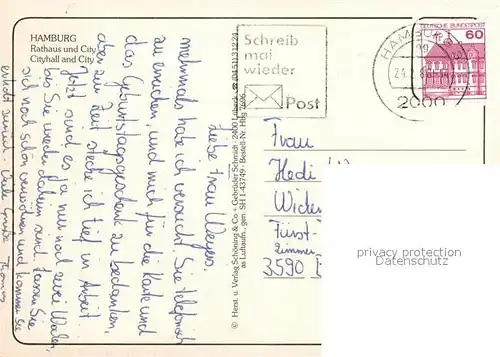 HAMBURG
Rathaus und City
Cityhall and City
Liebe Frau Weyers,
mehrmals habe ich versucht Sie telefonisch
zu erreichen, und mich für die Karte und
das Geburtstagsgeschenk zu bedanken,
aber zur Zeit stecke ich tief in Arbeit.
Jetzt sind es ja nur noch zwei
bis Sie wieder daheim sind. Lassen Sie
sich noch schön verwöhnen und kommen Sie
erholt zurück. Thomas
© Herst. u. Verlag Schöning & Co + Gebrüder Schmidt · 2400 Lübeck · ☎ (0451) 31220
as Luftaufn., gen. SH 1-43749 · Bestell-Nr. Hbg
Schreib
mal
wieder
Post
HAMBURG
2000
DEUTSCHE BUNDESPOST
60
Frau
Hedi
Fürst-
Zimmer
3590
privacy protection
Datenschutz